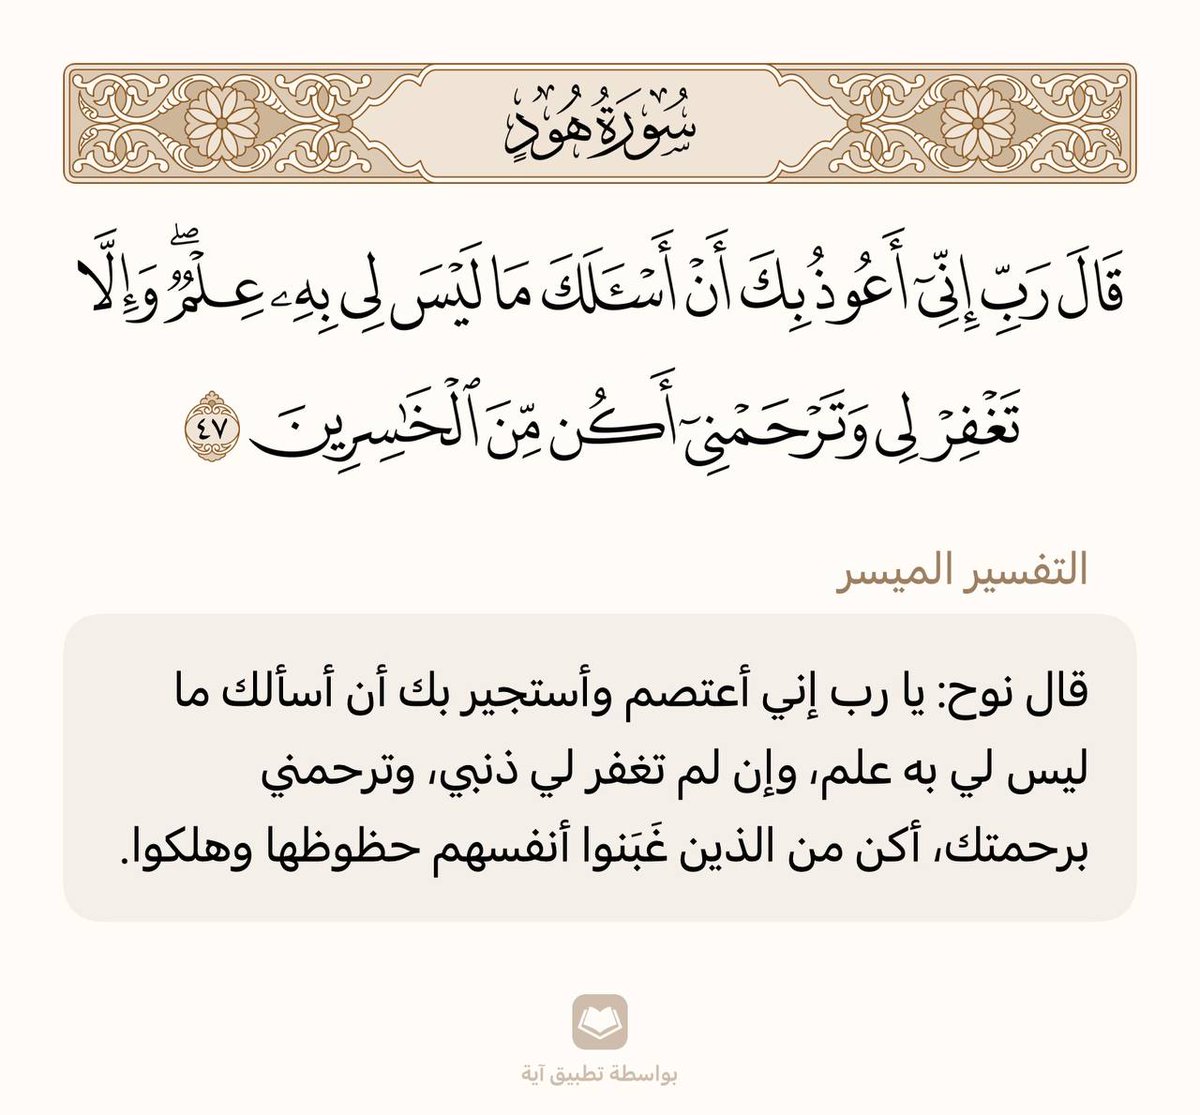 سُورَةُ هُودٍ
قَالَ رَبِّ إِنِّيٓ أَعُوذُ بِكَ أَنۡ أَسۡـَٔلَكَ مَا لَيۡسَ لِي بِهِۦ عِلۡمٞۖ وَإِلَّا
تَغۡفِرۡ لِي وَتَرۡحَمۡنِيٓ أَكُن مِّنَ ٱلۡخَٰسِرِينَ ٤٧
التفسير الميسر
قال نوح: يا رب إني أعتصم وأستجير بك أن أسألك ما
ليس لي به علم، وإن لم تغفر لي ذنبي، وترحمني
برحمتك، أكن من الذين غَبَنوا أنفسهم حظوظها وهلكوا.
بواسطة تطبيق آية